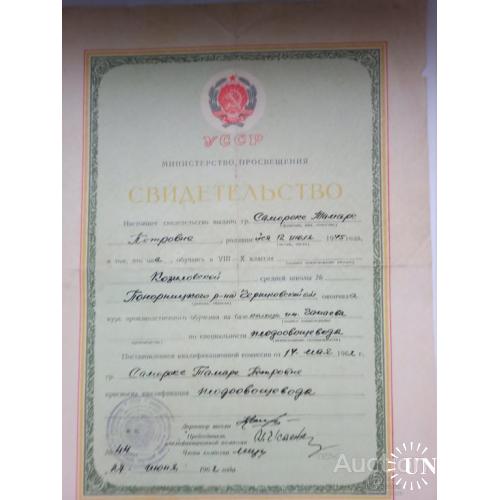 УССР
МИНИСТЕРСТВО ПРОСВЕЩЕНИЯ
СВИДЕТЕЛЬСТВО
Настоящее свидетельство выдано гр. Самороке Тамаре
Петровне, родившейся 12 июля 1945 года,
в том, что она, обучаясь в VIII—X классе
Козиловской средней школы №
Понорницкого р-на Черниговской обл окончила
курс производственного обучения на базе колхоза им. Чапаева
по специальности плодоовощевода
Постановлением квалификационной комиссии от 14 мая 1962 г.
гр. Самороке Тамаре Петровне
присвоена квалификация плодоовощевода
Директор школы
Председатель
квалификационной комиссии
Члены комиссии
№ 44
24 июня 1962 года
Аукцион
UN